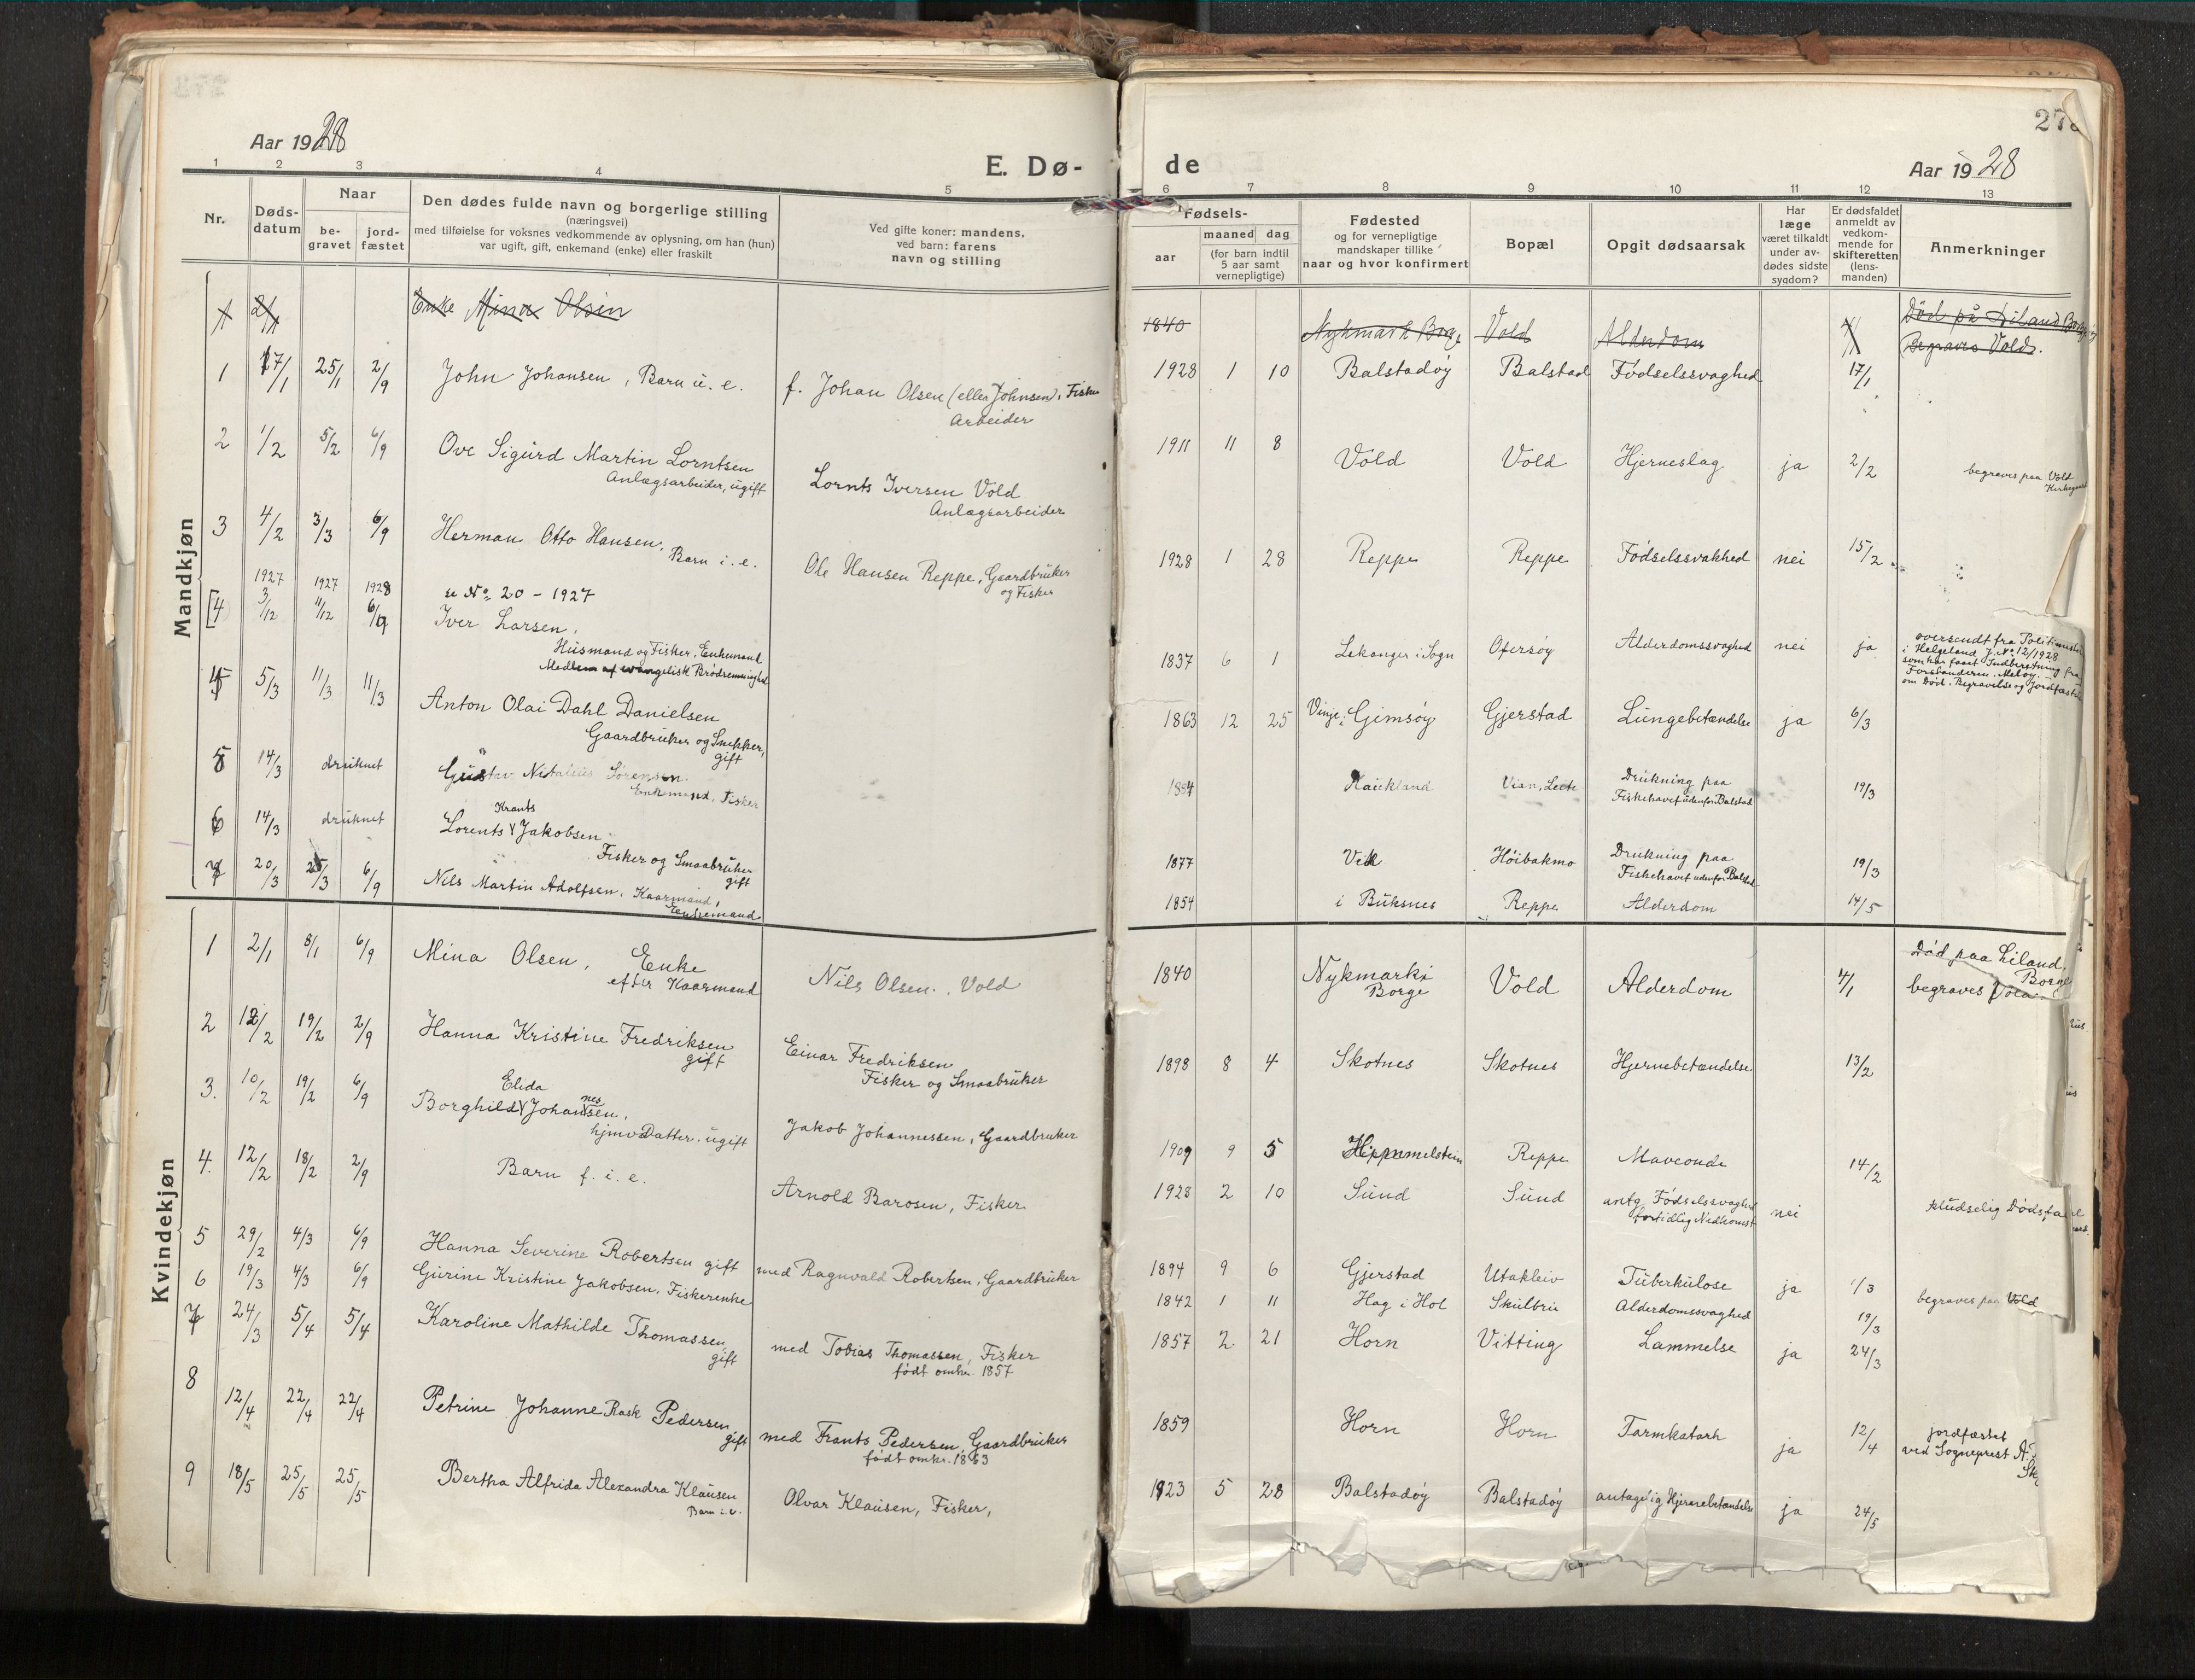 Aar 1928
E. Dø-
1 2 3 4 5
Nr.
Døds-
datum
Naar
be-
gravet
jord-
fæstet
Den dødes fulde navn og borgerlige stilling
(næringsvei)
med tilføielse for voksnes vedkommende av oplysning, om han (hun)
var ugift, gift, enkemand (enke) eller fraskilt
Ved gifte koner: mandens,
ved barn: farens
navn og stilling
de
Aar 1928
6 7 8 9 10 11 12 13
Fødsels-
aar
maaned dag
(for barn indtil
5 aar samt
vernepligtige)
Fødested
og for vernepligtige
mandskaper tillike
naar og hvor konfirmert
Bopæl
Opgit dødsaarsak
Har
læge
været tilkaldt
under av-
dødes sidste
sygdom?
Er dødsfaldet
anmeldt av
vedkom-
mende for
skifteretten
(lens-
manden)
Anmerkninger
Mandkjøn
Enke Mina Olsen
1840 Nykmark Borge Vold Alderdom
Død på Liland Borge
Begraves Vold.
1 17/1 25/1 2/9 John Johansen, Barn u. e. f. Johan Olsen (eller Johnsen), Fisker
Arbeider
1928 1 10 Balstadøy Balstad Fødselssvaghed 17/1
2 1/2 5/2 6/9 Ove Sigurd Martin Lorntsen
Anlægsarbeider, ugift
Lornts Iversen Vold
Anlægsarbeider
1911 11 8 Vold Vold Hjerneslag ja 2/2 begraves paa Vold
Kirkegaard
3 4/2 3/3 6/9 Herman Otto Hansen,
Barn i. e.
Ole Hansen Reppe, Gaardbruker
og Fisker
1928 1 28 Reppe Reppe Fødselssvakhed nei 15/2
1927 1927 1928 se No. 20 - 1927
[4 3/12 11/12 6/9 Iver Larsen,
Husmand og Fisker, Enkemand
Medlem af evangelisk Brødremenighed
1837 6 1 Lekanger i Sogn Ofersøy Alderdomssvaghed nei ja
oversendt fra Politimesteren
i Helgeland J. No. 12/1928
som har faaet Indberetning fra
Forstanderen, Meløy.
om Død, Begravelse og Jordfæstelse
4 5/3 11/3 11/3 Anton Olai Dahl Danielsen
Gaardbruker og Snekker,
gift
1863 12 25 Vinje i Gimsøy Gjerstad Lungebetændelse ja 6/3
5 14/3 druknet Gustav Nitalius Sørensen.
Enkemand, Fisker
1884 Haukland Drukning paa
Fiskehavet udenfor Balstad
19/3
6 14/3 druknet Krants
Lorents Jakobsen
Fisker og Smaabruker
gift
1877 Høibakmo Drukning paa
Fiskehavet udenfor Balstad
19/3
7 20/3 25/3 6/9 Nils Martin Adolfsen, Kaarmand,
Enkemand
1854 i Buksnes Reppe Alderdom 14/5
Kvindekjøn
1 2/1 8/1 6/9 Mina Olsen, Enke
efter Kaarmand
Nils Olsen, Vold
1840 Nykmark i
Borge
Vold Alderdom 4/1
Død paa Liland,
Borge
begraves Vold
2 12/2 19/2 2/9 Hanna Kristine Fredriksen
gift
Einar Fredriksen
Fisker og Smaabruker
1898 8 4 Skotnes Skotnes Hjernebetændelse 13/2
3. 10/2 19/2 6/9 Elida nes
Borghild Johansen,
hjmv Datter, ugift
Jakob Johannessen, Gaardbruker
1909 9 5 Reppe Maveonde 14/2
4. 12/2 18/2 2/9 Barn f. i. e.
Arnold Barosen, Fisker
1928 2 10 Sund Sund antg. Fødselssvaghed
fortidlig Nedkomst
nei pludselig Dødsfald
5 29/2 4/3 6/9 Hanna Severine Robertsen gift med Ragnvald Robertsen, Gaardbruker
1894 9 6 Gjerstad Utakleiv Tuberkulose ja 1/3 begraves paa Vold
6 19/3 4/3 6/9 Gurine Kristine Jakobsen, Fiskerenke
1842 1 11 Hag i Hol Skulbru Alderdomssvaghed 19/3
7 24/3 5/4 5/4 Karoline Mathilde Thomassen,
gift
med Tobias Thomassen, Fisker
født omkr. 1857
1857 2 21 Horn Vitting Lammelse ja 24/3
8 12/4 22/4 22/4 Petrine Johanne Rask Pedersen,
gift
med Frants Pedersen, Gaardbruker
født omkr. 1863
1859 Horn Horn Tarmkatarh ja 12/4
jordfæstet
ved Sogneprest A.
9 18/5 25/5 25/5 Bertha Alfrida Alexandra Klausen
Barn i. e.
Olvar Klausen, Fisker,
1923 5 28 Balstadøy Balstadøy antagelig Hjernebetændelse ja 24/5